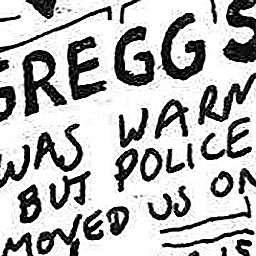 GREGGS
WAS WARM
BUT POLICE
MOVED US ON